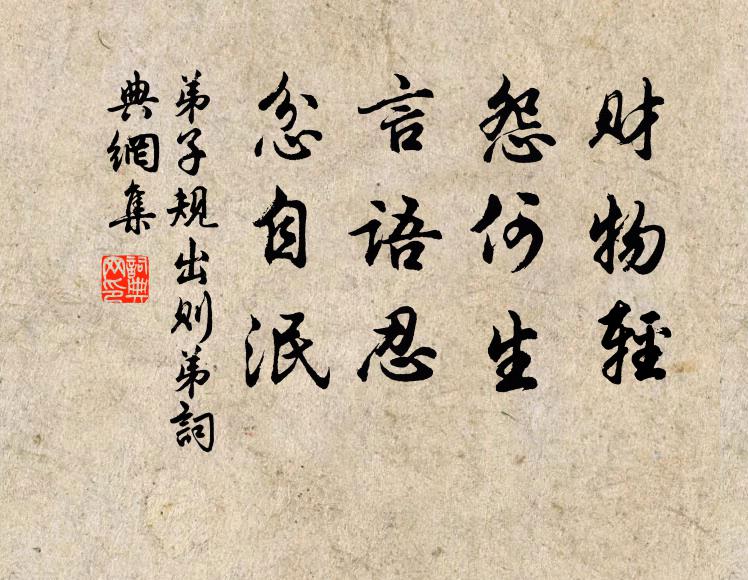 财物輕
怨何生
言語忍
忿自泯
弟子規出则弟詞
典網集
詞典网印